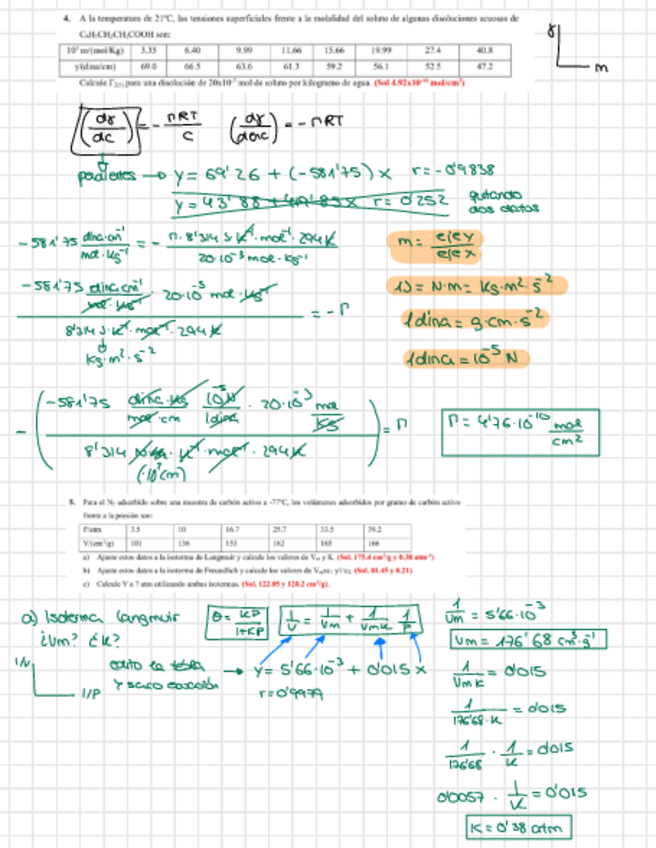 4. A la temperatura de 21ºC, las tensiones superficiales frente a la molalidad del soluto de algunas disoluciones acuosas de
C₆H₅CH₂CH₂COOH son:
10³ m/(mol/Kg) 3.35 6.40 9.99 11.66 15.66 19.99 27.4 40.8
γ/(dina/cm) 69.0 66.5 63.6 61.3 59.2 56.1 52.5 47.2
Calcule Γ₂₍₁₎ para una disolución de 20x10⁻³ mol de soluto por kilogramo de agua. (Sol 4.92x10⁻¹⁰ mol/cm²)
γ
m
(dγ/dc) = - ΓRT/C (dγ/dlnc) = - ΓRT
pendientes → y = 69'26 + (-581'75) x r = -0'9838
y = 43'88 + 419'85x r = 0'252 quitando dos datos
-581'75 dina·cm⁻¹/mol·kg⁻¹ = - Γ·8'314 J·K⁻¹·mol⁻¹·294K / 20·10⁻³ mol·kg⁻¹
m = eje y/eje x
-581'75 dina·cm⁻¹/mol·kg⁻¹ · 20·10⁻³ mol·kg⁻¹ / 8'314 J·K⁻¹·mol⁻¹·294K = -Γ
1J = N·m = kg·m²·s⁻²
1dina = g·cm·s⁻²
kg·m²·s⁻²
1dina = 10⁻⁵ N
- ( -581'75 dina·kg/mol·cm · 10⁻⁵N/1dina · 20·10⁻³ mol/kg / 8'314 N·m·K⁻¹·mol⁻¹·294K ) = Γ
(10²cm)
Γ = 4'76·10⁻¹⁰ mol/cm²
5. Para el N₂ adsorbido sobre una muestra de carbón activo a -77ºC, los volúmenes adsorbidos por gramo de carbón activo
frente a la presión son:
P/atm 3.5 10 16.7 25.7 33.5 39.2
V/(cm³/g) 101 136 153 162 165 166
a) Ajuste estos datos a la isoterma de Langmuir y calcule los valores de Vₘ y K. (Sol. 175.4 cm³/g y 0.38 atm⁻¹)
b) Ajuste estos datos a la isoterma de Freundlich y calcule los valores de Vₘₐₓ. y 1/n. (Sol. 81.45 y 0.21)
c) Calcule V a 7 atm utilizando ambas isotermas. (Sol. 122.05 y 128.2 cm³/g).
a) Isoterma langmuir θ = KP/1+KP 1/V = 1/Vm + 1/VmK 1/P
¿Vm? ¿K?
1/V
1/P
edito la tabla y saco ecuación → y = 5'66·10⁻³ + 0'015 x
r = 0'9979
1/Vm = 5'66·10⁻³
Vm = 176'68 cm³·g⁻¹
1/VmK = 0'015
1/176'68·K = 0'015
1/176'68 · 1/K = 0'015
0'0057 · 1/K = 0'015
K = 0'38 atm